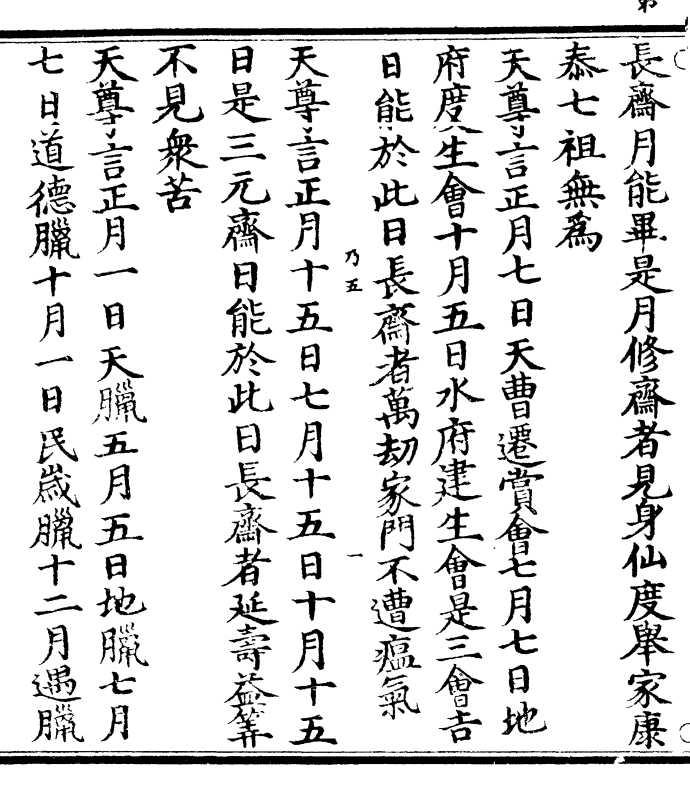 長齋月能畢是月修齋者見身仙度舉家康
泰七祖無爲
天尊言正月七日天曹遷賞會七月七日地
府度生會十月五日水府建生會是三會吉
日能於此日長齋者萬劫家門不遭瘟氣
乃五
一
天尊言正月十五日七月十五日十月十五
日是三元齋日能於此日長齋者延壽益筭
不見衆苦
天尊言正月一日天臘五月五日地臘七月
七日道德臘十月一日民歲臘十二月遇臘